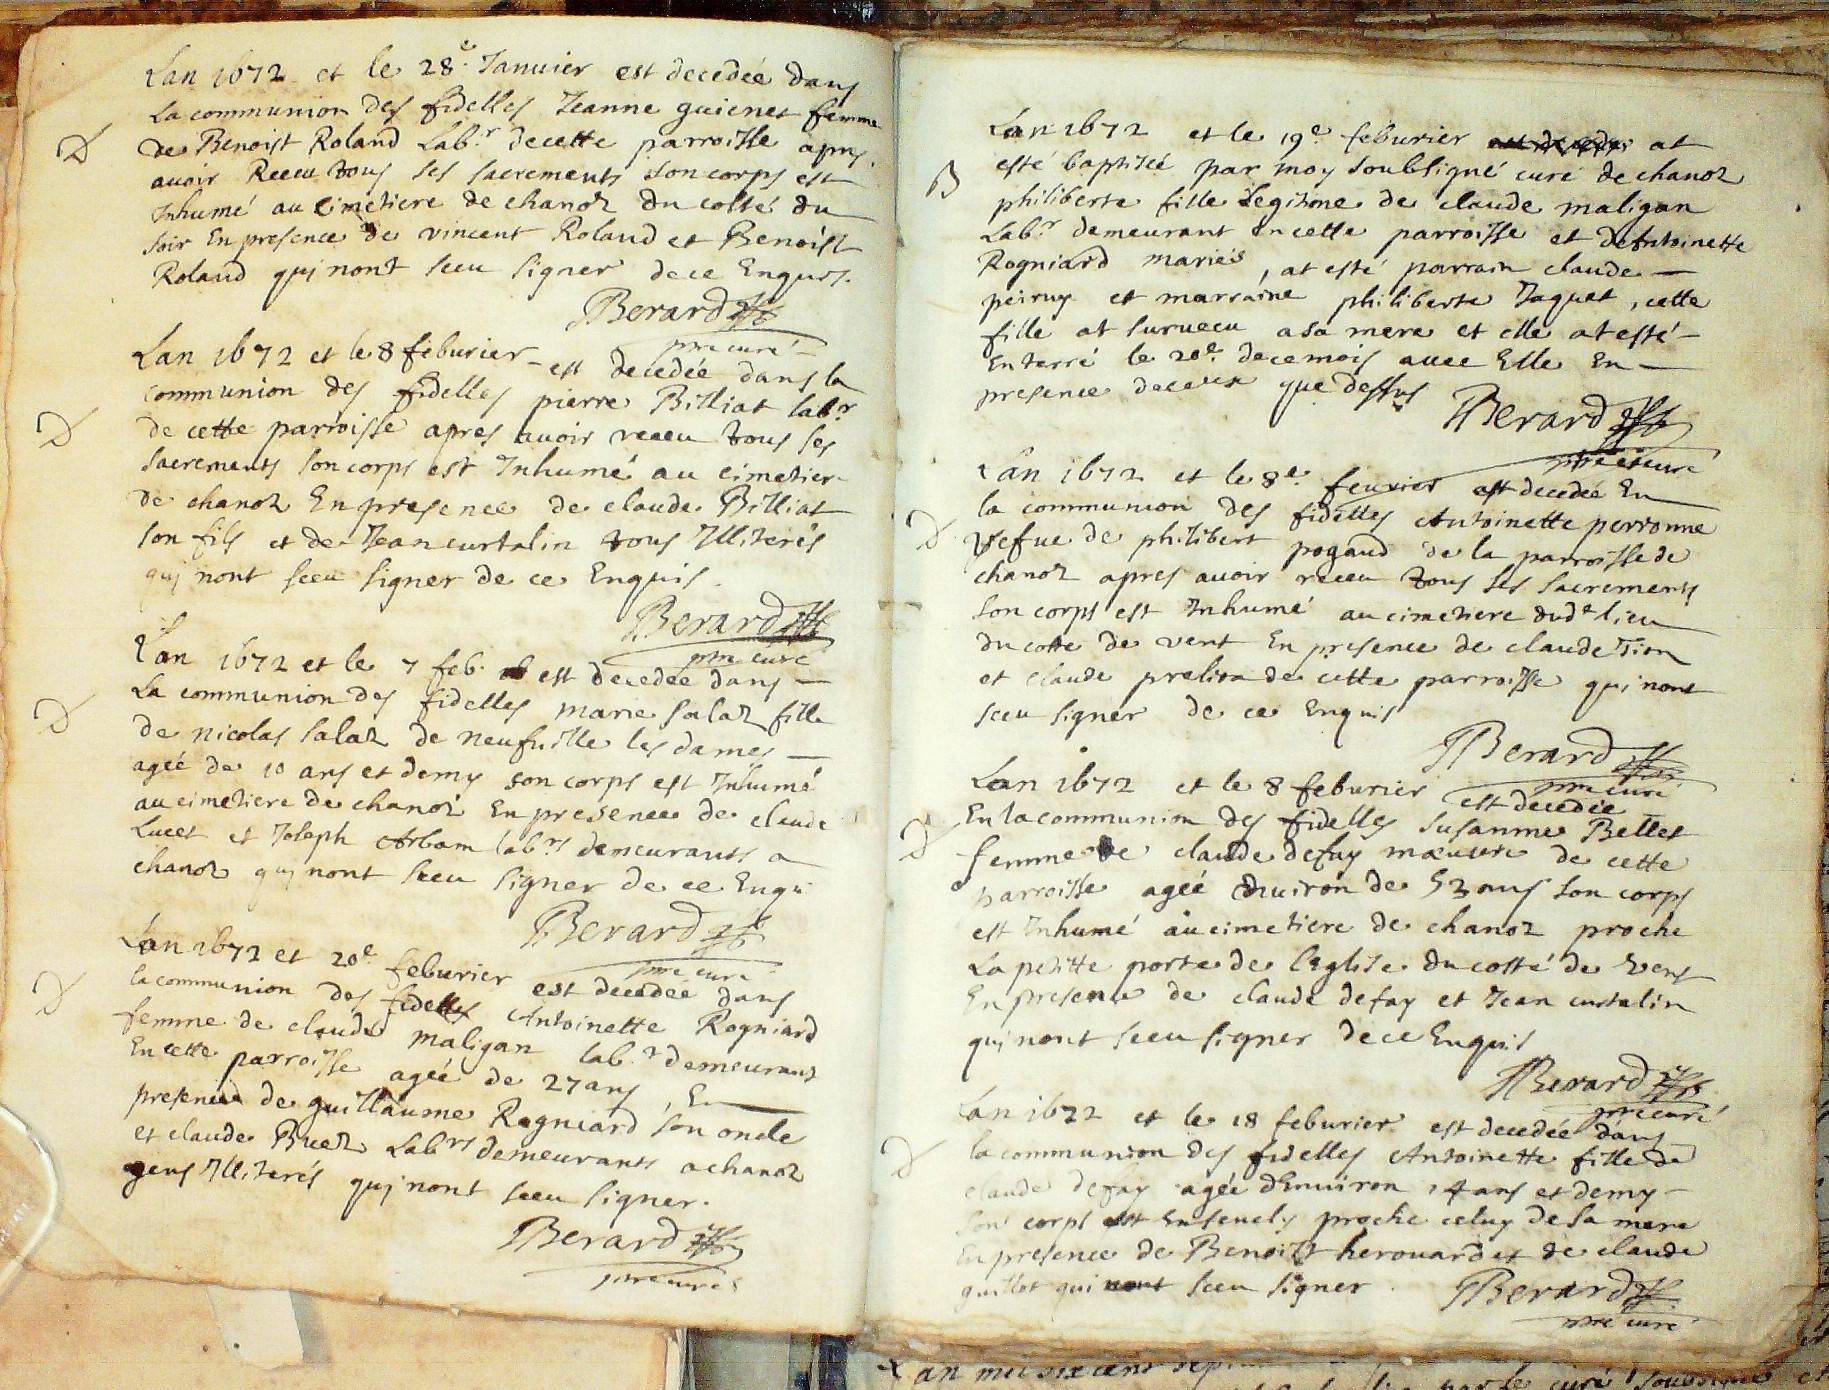 Lan 1672 et le 28e Januier est decedeé dans
La communion des fidelles Jeanne guienet femme
D de Benoist Roland Labr decette parroisse apres
auoir Receu tous ses sacrements son corps est
Inhumé au Cimetiere de chanoz du costé du
soir En presence de vincent Roland et Benoist
Roland qui nont sceu signer de ce Enquis.
Berard
ptre curé
Lan 1672 et le 8 feburier est decedée dans la
communion des fidelles pierre Billiat labr
D de cette parroisse apres auoir receu tous ses
sacrements son corps est Inhumé au cimetier
de chanoz En presence de claude Billiat
son fils et de Jean curtalin tous Illiterés
qui nont sceu signer de ce Enquis.
Berard
ptre curé
Lan 1672 et le 7 feb. est decedeé dans
La communion des fidelles marie salaz fille
D de nicolas salaz de neufuille les dames
ageé de 10 ans et demy son corps est Inhumé
au cimetiere de chanoz En presence de claude
Lucet et Joseph Arbam labrs demeurants a
chanoz qui nont sceu signer de ce Enqui
Berard
ptre curé
Lan 1672 et 20e feburier est decedeé dans
D la communion des fidelles Antoinette Rogniard
femme de claude maligan labr demeurant
En cette parroisse ageé de 27 ans, En
presence de guillaume Rogniard son oncle
et claude Buet Labrs demeurants a chanoz
gens Illiterés qui nont sceu signer.
Berard
ptre curé
Lan 1672 et le 19e feburier at
B esté baptiseé par moy soubsigné curé de chanoz
philiberte fille Legitime de claude maligan
Labr demeurant En cette parroisse et de Antoinette
Rogniard mariés, at esté parrain claude
peiruy et marraine philiberte Jaquet, cette
fille at suruecu a sa mere et elle at esté
Enterré le 20e de ce mois auec Elle En
presence de ceux que dessus
Berard
ptre curé
Lan 1672 et le 8e feurier est decedeé En
la communion des fidelles Antoinette perronne
D Vefue de philibert pogaud de la parroisse de
chanoz apres auoir receu tous ses sacrements
son corps est Inhumé au cimetiere dude lieu
du coste de vent En presence de claude Tion
et claude prelion de cette parroisse qui nont
sceu signer de ce Enquis
Berard
ptre curé
Lan 1672 et le 8 feburier est decedeé
En la communion des fidelles Susanne Bellet
D femme de claude defay de cette
parroisse ageé Enuiron de 53 ans son corps
est Inhumé au cimetiere de chanoz proche
La petitte porte de leglise du costé de Vent
En presence de claude defay et Jean curtalin
qui nont sceu signer de ce Enquis
Berard
ptre curé
Lan 1672 et le 18 feburier est decedeé dans
D la communion des fidelles Antoinette fille de
claude defay ageé dEnuiron 14 ans et demy
son corps est Enseuely proche celuy de sa mere
En presence de Benoist herouard et de claude
guillot qui nont sceu signer
Berard
ptre curé